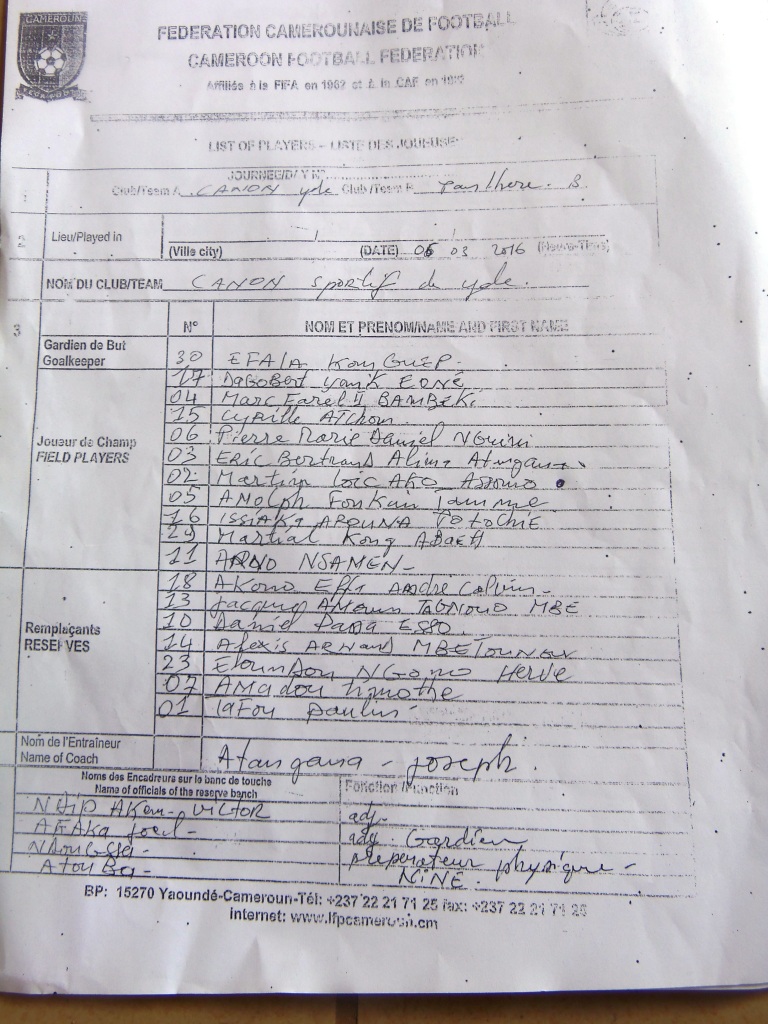 CAMEROUN
FEDERATION CAMEROUNAISE DE FOOTBALL
CAMEROON FOOTBALL FEDERATION
Affiliée à la FIFA en 1962 et à la CAF en
LIST OF PLAYERS - LISTE DES JOUEUSE
JOURNEE/DAY N°
1 Club/Team A CANON yde Club/Team B Panthere. B.
2 Lieu/Played in
(Ville city) (DATE) 06 03 2016
NOM DU CLUB/TEAM CANON sportif de yde.
3 N° NOM ET PRENOM/NAME AND FIRST NAME
Gardien de But
Goalkeeper
30 EFALA Kom GUEP.
17 DAGOBERT yanik EONE
04 Marc Farel II BAMBEK
15 Cyrille ATchom
Joueur de Champ
FIELD PLAYERS
06 Pierre Marie Daniel NGuini
03 ERIC Bertrand Alima Atangana
02 Martin Loïc AKO Assomo
05 ANolph Fonkain
16 ISSIAKA AROUNA
29 Martial Kong ABAEH
11 ARNO NSAMEN-
Remplaçants
RESERVES
18 AKono Effa André Calvin-
13 Jacques TAGNOUO MBE
10 Daniel Papa ESSO.
14 Alexis ARNAUD
23 Eloundou NGono Herve
07 AMadou
01 Paulin
Nom de l'Entraîneur
Name of Coach
Atangana - joseph.
Noms des Encadreurs sur la banc de touche
Name of officials of the reserve banch
Fonction /Function
VICTOR adj-
AFAKA Joël- adj. Gardien
NDOUGSSA- préparateur physique-
Atou Ba-
BP: 15270 Yaoundé-Cameroun-Tél: +237 22 21 71 25 fax: +237 22 21 71 25
internet: www.lfpcameroun.cm